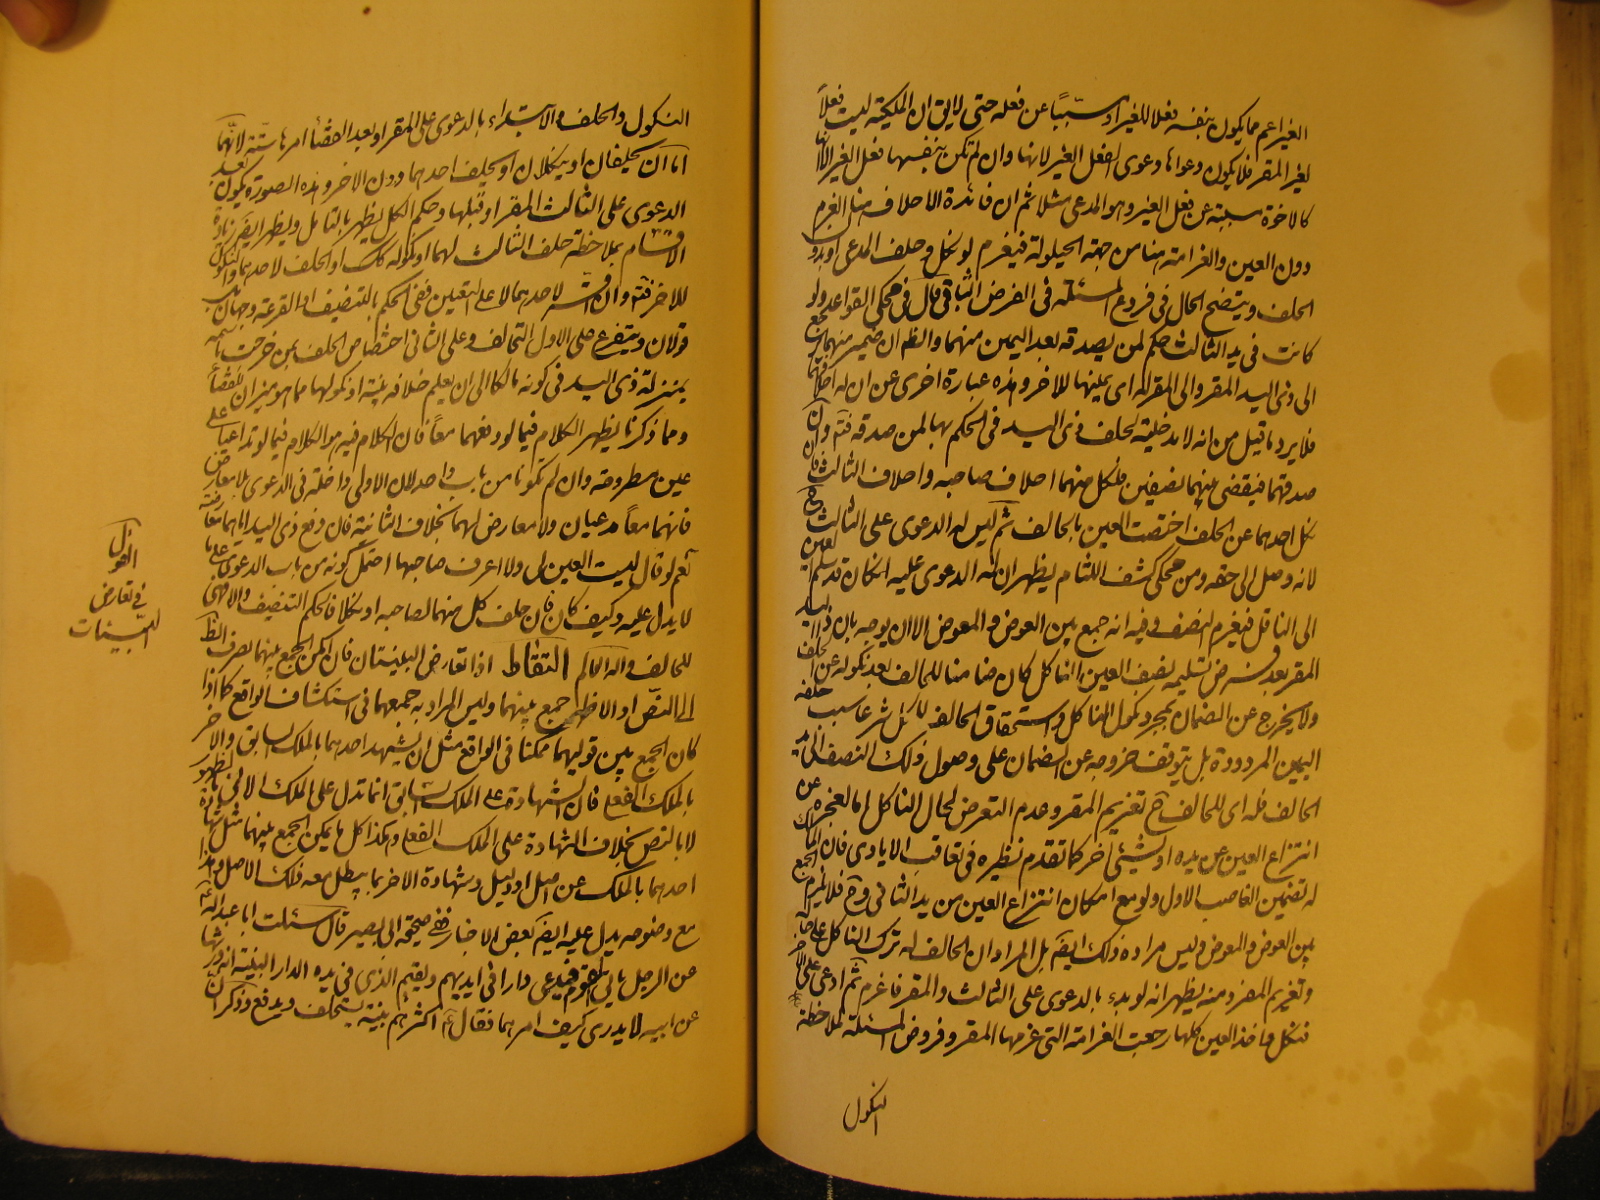 الغير اعم مما يكون بنفسه فعلا للغير او مسببًا عن فعله حتى لايق ان الملكية ليست فعلاً
لغير المقر فلا يكون دعواها دعوى لفعل الغير لانها وان لم تكن بنفسها فعل الغير الا انها
كالاخوة مسببة عن فعل الغير وهو المدعى مثلا ثم ان فائدة الاحلاف هنا الغرم
دون العين والغرامة هنا من جهة الحيلولة فيغرم لو نكل وحلف المدعى او بدون
الحلف ويتضح الحال فى فروع المسئلة فى الفرض الثانى قال فى محكى القواعد ولو
كانت فى يد الثالث حكم لمن يصدقه بعد اليمين منهما والظ ان ضمير منهما راجع
الى ذى اليد المقر والى المقر له اى يمينها للاخر وهذه عبارة اخرى عن ان له احلافهما
فلا يرد ما قيل من انه لا مدخلية لحلف ذى اليد فى الحكم بها لمن صدقه فتم وان
صدقهما فيقضى بينهما نصفين فلكل منهما احلاف صاحبه واحلاف الثالث فان
نكل احدهما عن الحلف اختصت العين بالحالف ثم ليس له الدعوى على الثالث
لانه وصل الى حقه ومن محكى كشف اللثام يظهر ان له الدعوى عليه اذا كان قد سلم العين
الى الناكل فيغرم النصف وفيه انه جمع بين العوض والمعوض الا ان يوجه بان ذا اليد
المقر بعد فرض تسليمه نصف العين الناكل كان ضامنا للحالف بعد نكوله عن الحلف
ولا يخرج عن الضمان بمجرد نكول الناكل واستحقاق الحالف بسبب حلفه
اليمين المردودة بل يتوقف خروجه عن الضمان على وصول ذلك النصف الى
الحالف فله اى للحالف ح تغريم المقر وعدم التعرض لحال الناكل اما لعجزه عن
انتزاع العين عن يده او لشئ اخر كما تقدم نظيره فى تعاقب الايادى فان المالك
له تضمين الغاصب الاول ولو مع امكان انتزاع العين من يد الثانى وح فلا يلزم الجمع
بين العوض والمعوض وليس مراده ذلك ايضً بل المراد ان الحالف له ترك الناكل على حاله
وتغريم المقر ومنه يظهر انه لو بدء بالدعوى على الثالث والمقر فاغرم ثم ادعى على الاخر
فنكل واخذ العين كلها رجعت الغرامة التى غرمها المقر وفروض المسئلة بملاحظة
النكول
النكول والحلف والابتداء بالدعوى على المقر او بعد القضاء امرها ستة لانهما
اما ان يحلفان او ينكلان او يحلف احدهما دون الاخر وهذه الصورة يكون بعد
الدعوى على الثالث المقر او قبلها وحكم الكل يظهر بالتامل ويظهر ايضً زيادة
الاقسام بملاحظة حلف الثالث لهما او نكوله كك او الحلف لاحدهما والنكول
للاخر فتم وان اقر لاحدهما لا على التعيين ففى الحكم بالتنصيف او القرعة وجهان بل
قولان ويتفرع على الاول التحالف وعلى الثانى اختصاص الحلف بمن خرجت باسمه
بمنزلة ذى اليد فى كونه مالكا الى ان يعلم خلافه ببينة او نكولها مما هو ميزان للقضاء
ومما ذكرنا يظهر الكلام فيما لو دفعهما معاً فان الكلام فيه هو الكلام فيما لو تداعيا على
عين مطروحة وان لم تكونا من باب واحد لان الاولى داخلة فى الدعوى بلا معارض
فانهما معاً مدعيان ولا معارض لهما بخلاف الثانية فان دفع ذى اليد اياهما معارضة
نعم لو قال ليست العين لى ولا اعرف صاحبها احتمل كونه من باب الدعوى على ما
لا يد عليه وكيف كان فان حلف كل منهما لصاحبه او نكلا فالحكم التنصيف والا فهى
للحالف والله العالم التقاط اذا تعارض البينتان فان امكن الجمع بينهما بصرف الظ
الى النص او الاظهر جمع بينهما وليس المراد به جمعهما فى استكشاف الواقع كما اذا
كان الجمع بين قوليهما ممكنا فى الواقع مثل ان يشهد احدهما بالملك السابق والاخر
بالملك الفعلى فان الشهادة على الملك السابق انما تدل على الملك الحالى بالظهور
لا بالنص بخلاف الشهادة على الملك الفعلى وهكذا كل ما يمكن الجمع بينهما مثل شهادة
احدهما بالملك عن اصل او دليل وشهادة الاخر بما يبطل معه ذلك الاصل وهذا
مع وضوحه يدل عليه ايضً بعض الاخبار ففى صحيحة ابى بصير قال سئلت ابا عبد الله ع
عن الرجل ياتى القوم فيدعى دارا فى ايديهم ويقيم الذى فى يده الدار البينة انه ورثها
عن ابيه لا يدرى كيف امرهما فقال ع اكثرهم بينة يستحلف ويدفع وذكر ان
القول
فى تعارض
البينات